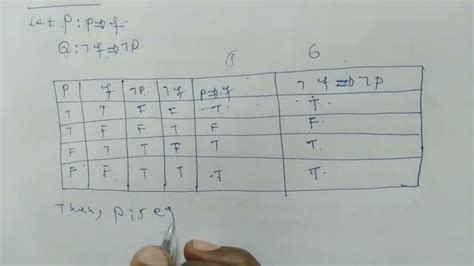 Let P: p⇒q.
Q: ¬q⇒¬P
5 6
P. q ¬P. ¬q P⇒q ¬q⇒¬P
T T F F T. T.
T F F T F F.
F T T F T T.
F F T T .T T.
Then, P is eq